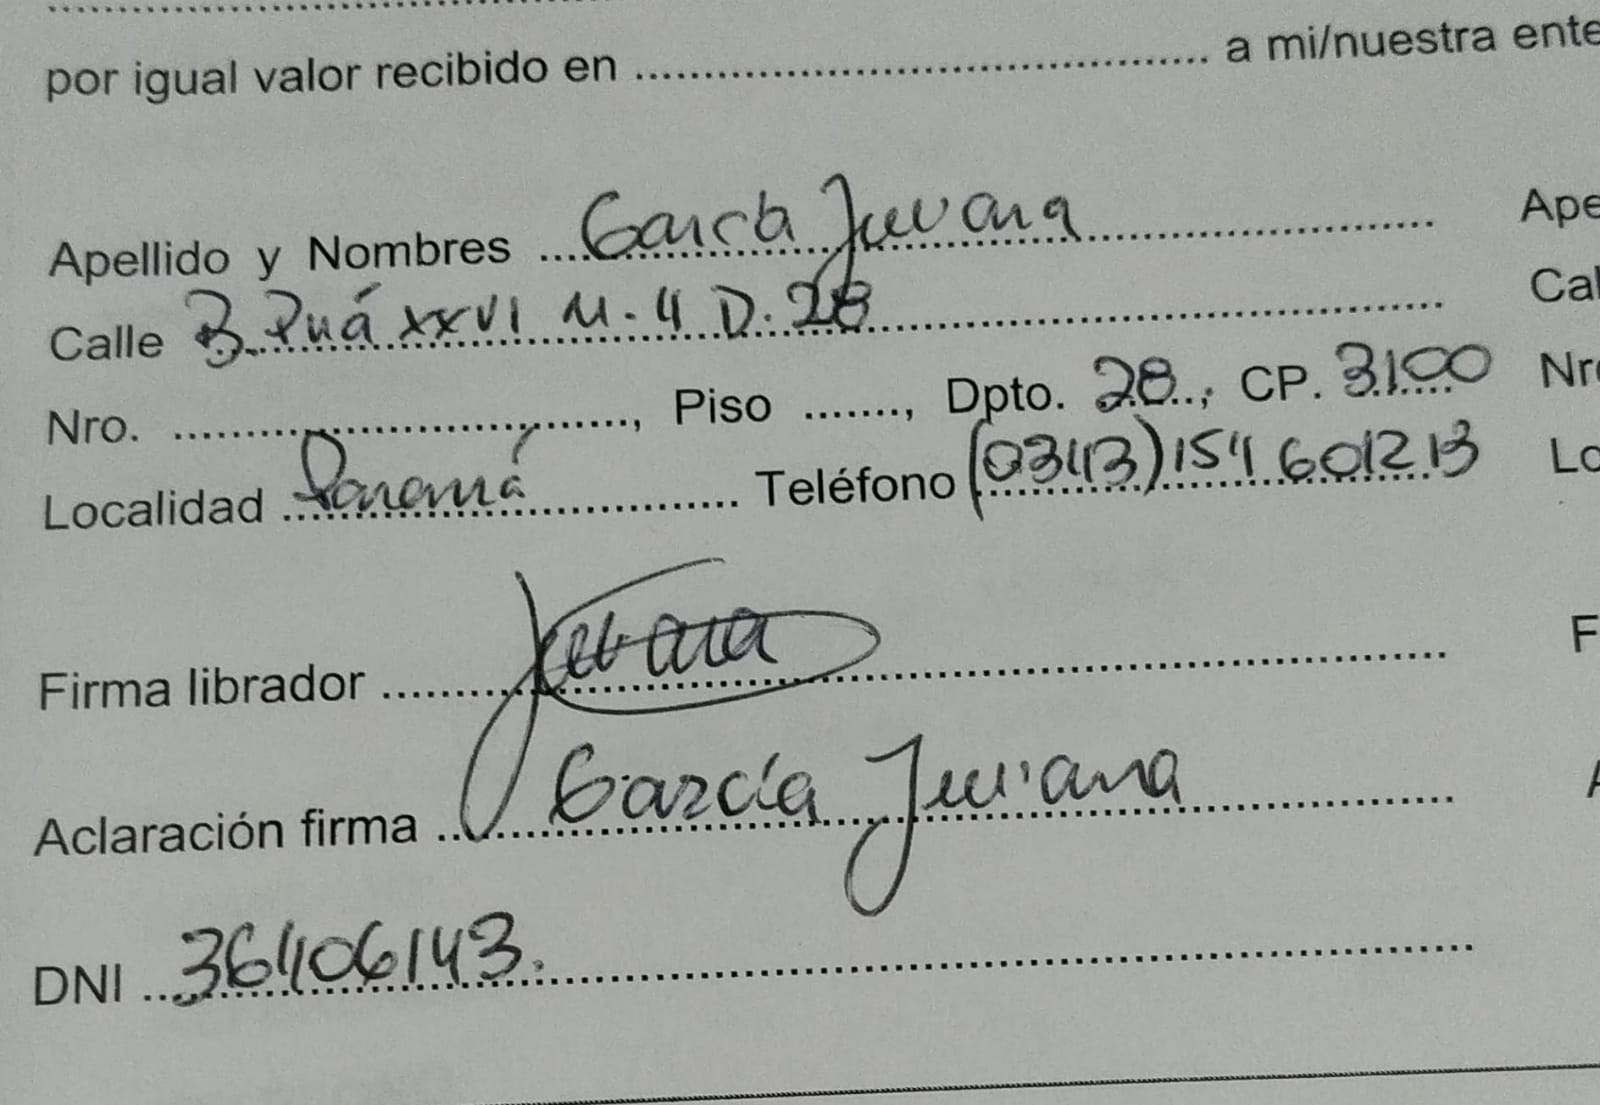 por igual valor recibido en ........................ a mi/nuestra ente
Apellido y Nombres García Juliana Ape
Calle B. Puá XXVI M. 4 D. 28 Cal
Nro. ........................, Piso ......., Dpto. 28..; CP. 3100 Nro
Localidad Paraná Teléfono (0343)154 601213 Lo
Firma librador ........................ F
Aclaración firma García Juliana A
DNI 36406143.